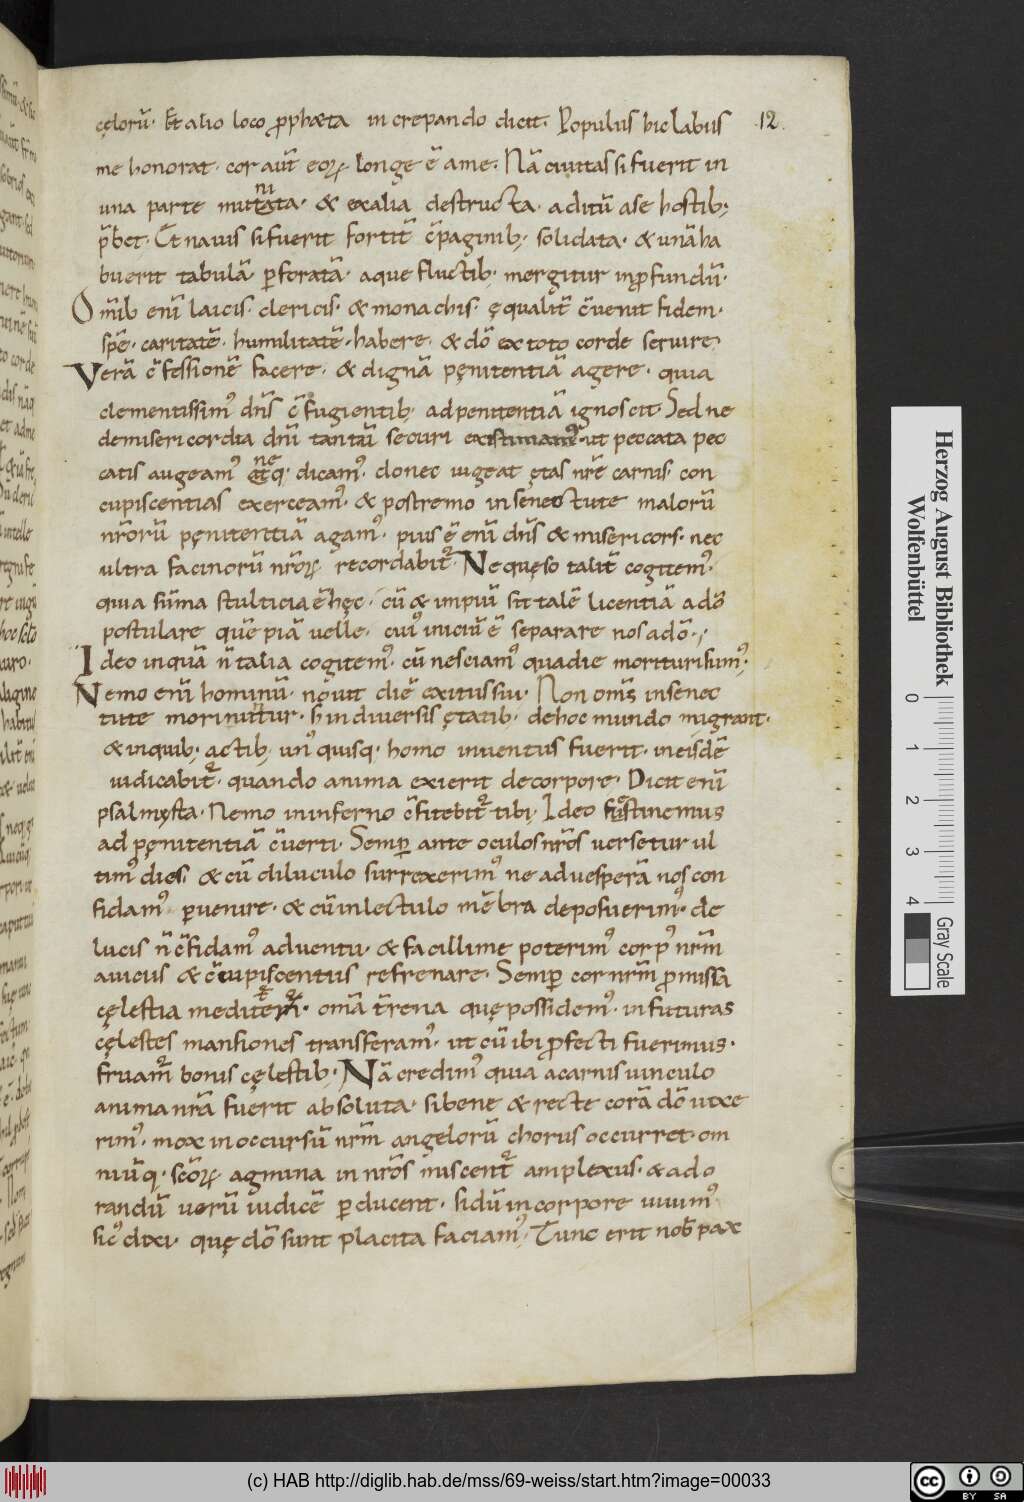 cęlorū. Et alio loco ꝓphæta increpando dicit. Populus hic labiis 12.
me honorat. cor aut̄ eoꝝ longe ē a me. Nā ciuitas si fuerit in
una parte munitata. & ex alia destructa. aditū ad se hostib;
p̄bet. Et nauis si fuerit fortit̄ cōpaginib; solidata. & unā ha
buerit tabulā ꝑforatā. aque fluctib; mergitur in ꝓfundū.
Om̄ib enī laicis. clericis. & monachis. ęqualit̄ cōuenit fidem.
spē. caritatē. humilitatē. habere. & dō ex toto corde seruire.
Verā cōfessionē facere. & dignā pęnitentiā agere. quia
clementissim᾽ dn̄s cōfugientib; ad penitentiā ignoscit. Sed ne
de misericordia dn̄i tantū securi existimam᾽. ut peccata pec
catis augeam᾽ neq;. dicam᾽. donec uigeat ętas nr̄ē carnis. con
cupiscentias exerceam᾽. & postremo in senectute malorū
nr̄orū pęnitentiā agam᾽. pius ē enī dn̄s & misericors. nec
ultra facinorū nr̄oꝝ recordabit᾽. Ne quęso talit̄ cogitem᾽.
quia sūma stulticia ē hęc. cū & impiū sit talē licentiā a dō
postulare quē piā uelle. cui᾽ iniciū ē separare nos a dō.
Ideo inquā n̄ talia cogitem᾽. cū nesciam᾽ qua die morituri sum᾽.
Nemo enī hominū. nouit diē exitus sui. Non om̄s in senec
tute moriuntur. s; in diuersis ętatib. de hoc mundo migrant.
& in quib; actib; un᾽quisq; homo inuentus fuerit. in eisdē
iudicabit᾽. quando anima exierit de corpore. Dicit enī
psalmysta. Nemo in inferno cōfitebit᾽ tibi. Ideo festinemus
ad pęnitentiā cōuerti. Semꝑ ante oculos nr̄os uersetur ul
tim᾽ dies. & cū diluculo surrexerim᾽ ne ad uesperā nos con
fidam᾽ ꝑuenire. & cū in lectulo mēbra deposuerim᾽. de
lucis n̄ cōfidam᾽ aduentu. & facillime poterim᾽ corp᾽ nr̄m
a uiciis & cōcupiscentiis refrenare. Semꝑ cor nr̄m ꝓmissa
cęlestia meditet᾽. om̄a t̄rena quę possidem᾽. in futuras
cęlestes mansiones transferam᾽. ut cū ibi ꝓfecti fuerimus.
fruam᾽ bonis cęlestib;. Nā credim᾽ quia a carnis uinculo
anima nr̄a fuerit absoluta. si bene & recte corā dō uixe
rim᾽. mox in occursū nr̄m angelorū chorus occurret. om
niūq; sc̄oꝝ agmina in nr̄os miscent᾽ amplexus. & ad o
randū uerū iudicē ꝑducent. si dū in corpore uiuim᾽
sic᾽ dixi. quę dō sunt placita faciam᾽. Tunc erit nob pax
Herzog August Bibliothek
Wolfenbüttel
0 1 2 3 4
Gray Scale
(c) HAB http://diglib.hab.de/mss/69-weiss/start.htm?image=00033
cc BY SA